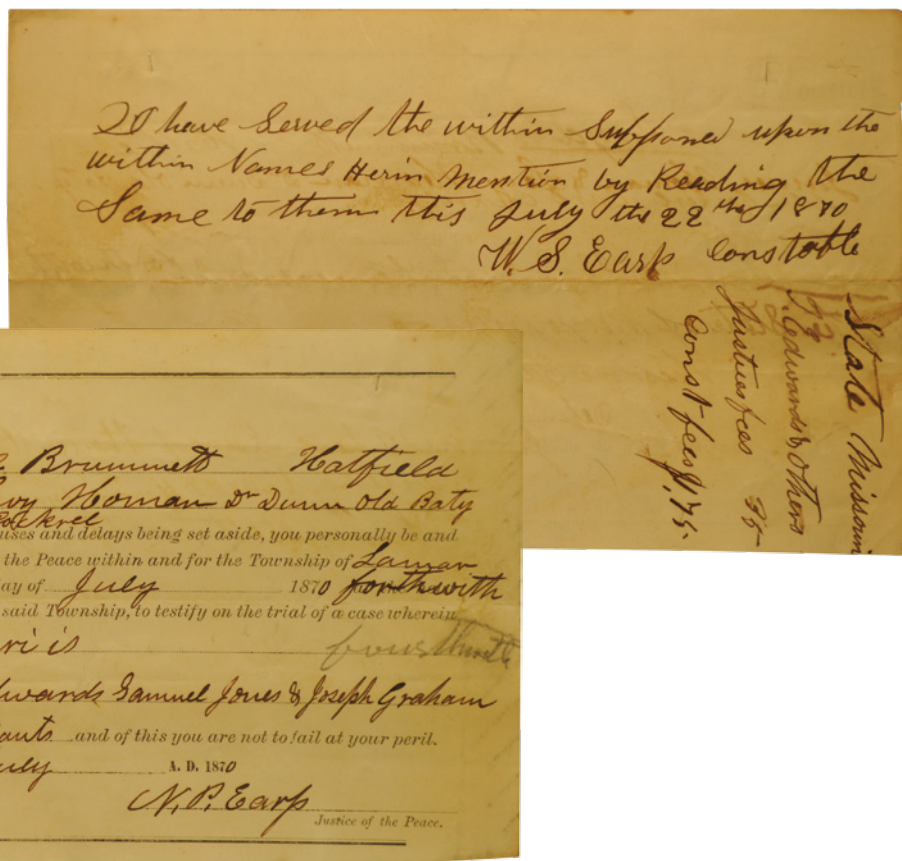 I have Served the within Supponed upon the
within Names Herin mention by Reading the
Same to them this July the 22th 1870
W. S. Earp Constable
State Missouri
vs
J. Edwards & Others
Justices fees 35
Const fees 1,75.
Brummett Hatfield
Homan Dr Dunn Old Baty
uses and delays being set aside, you personally be and
the Peace within and for the Township of Lamar
ay of July 1870 forthwith
said Township, to testify on the trial of a case wherein
ri is
dwards Samuel Jones & Joseph Graham
ants and of this you are not to fail at your peril.
uly A. D. 1870
N. P. Earp
Justice of the Peace.